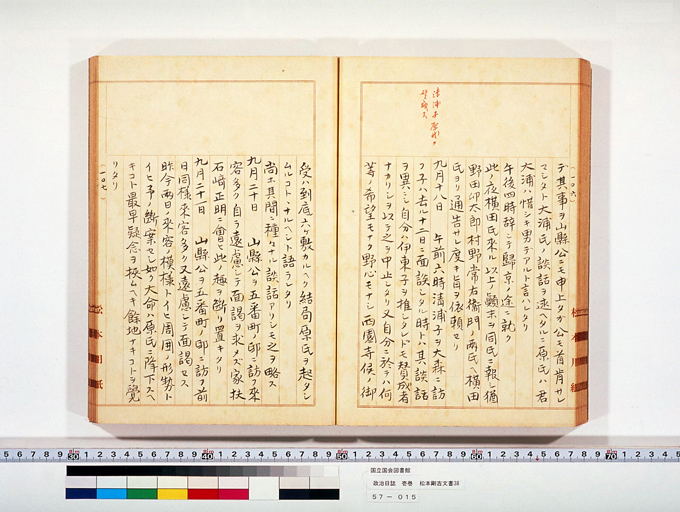 (一〇六)
清浦子原氏ヲ
テ其事ヲ山縣公ニモ申上タガ公モ首肯サレ
マシタト大浦氏ノ談話ヲ述ヘタルニ原氏ハ君
大浦ハ惜シキ男デアルト言ハレタリ
午後四時辞シテ歸京ノ途ニ就ク
此ノ夜横田氏來ル以上ノ顛末ヲ同氏ニ報シ猶
野田卯太郎村野常右衛門ノ両氏ヘ横田
氏ヨリ通告サレ度キ旨ヲ依頼セリ
九月十八日 午前六時清浦子ヲ大森ニ訪
フ子ハ去ル十二日ニ面談シタル時トハ其談話
ヲ異ニシ自分ハ伊東子ヲ推シタレドモ賛成者
ナカリシヲ以テ之ヲ中止シタリ又自分ニ於テハ何
等ノ希望モナク野心モナシ西園寺侯ノ御
受ハ到底六ツ敷カルヘク結局原氏ヲ起タシ
ムルコトヽナルヘシト語ラレタリ
尚ホ其間ニ種々ナル談話アリシモ之ヲ略ス
九月二十日 山縣公ヲ五番町ノ邸ニ訪フ來
客多ク自ラ遠慮シテ面謁ヲ求メズ家扶
石崎正明ニ會ヒ此ノ趣ヲ断リ置キタリ
九月二十一日 山縣公ヲ五番町ノ邸ニ訪フ前
日同様來客多ク又遠慮シテ面謁セス
昨今両日ノ來客ノ模様トイヒ周囲ノ形勢ト
イヒ予ノ断案セシ如ク大命ハ原氏ニ降下スヘ
キコト最早疑念ヲ挾ムヘキ餘地ナキコトヲ覺
リタリ
(一〇七)
松本用紙
松本用紙
国立国会図書館
政治日誌 壱巻 松本剛吉文書38
57-015